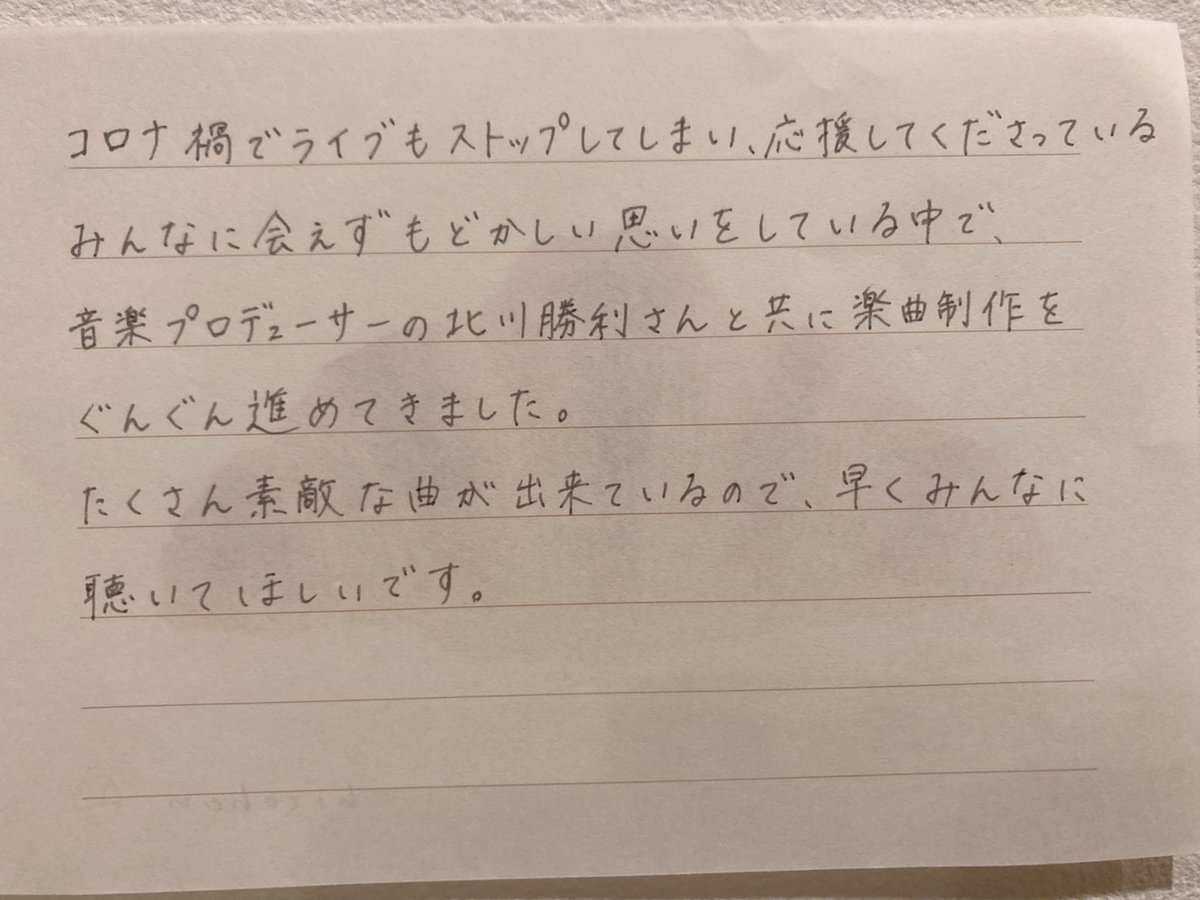 コロナ禍でライブもストップしてしまい、応援してくださっている
みんなに会えずもどかしい思いをしている中で、
音楽プロデューサーの北川勝利さんと共に楽曲制作を
ぐんぐん進めてきました。
たくさん素敵な曲が出来ているので、早くみんなに
聴いてほしいです。